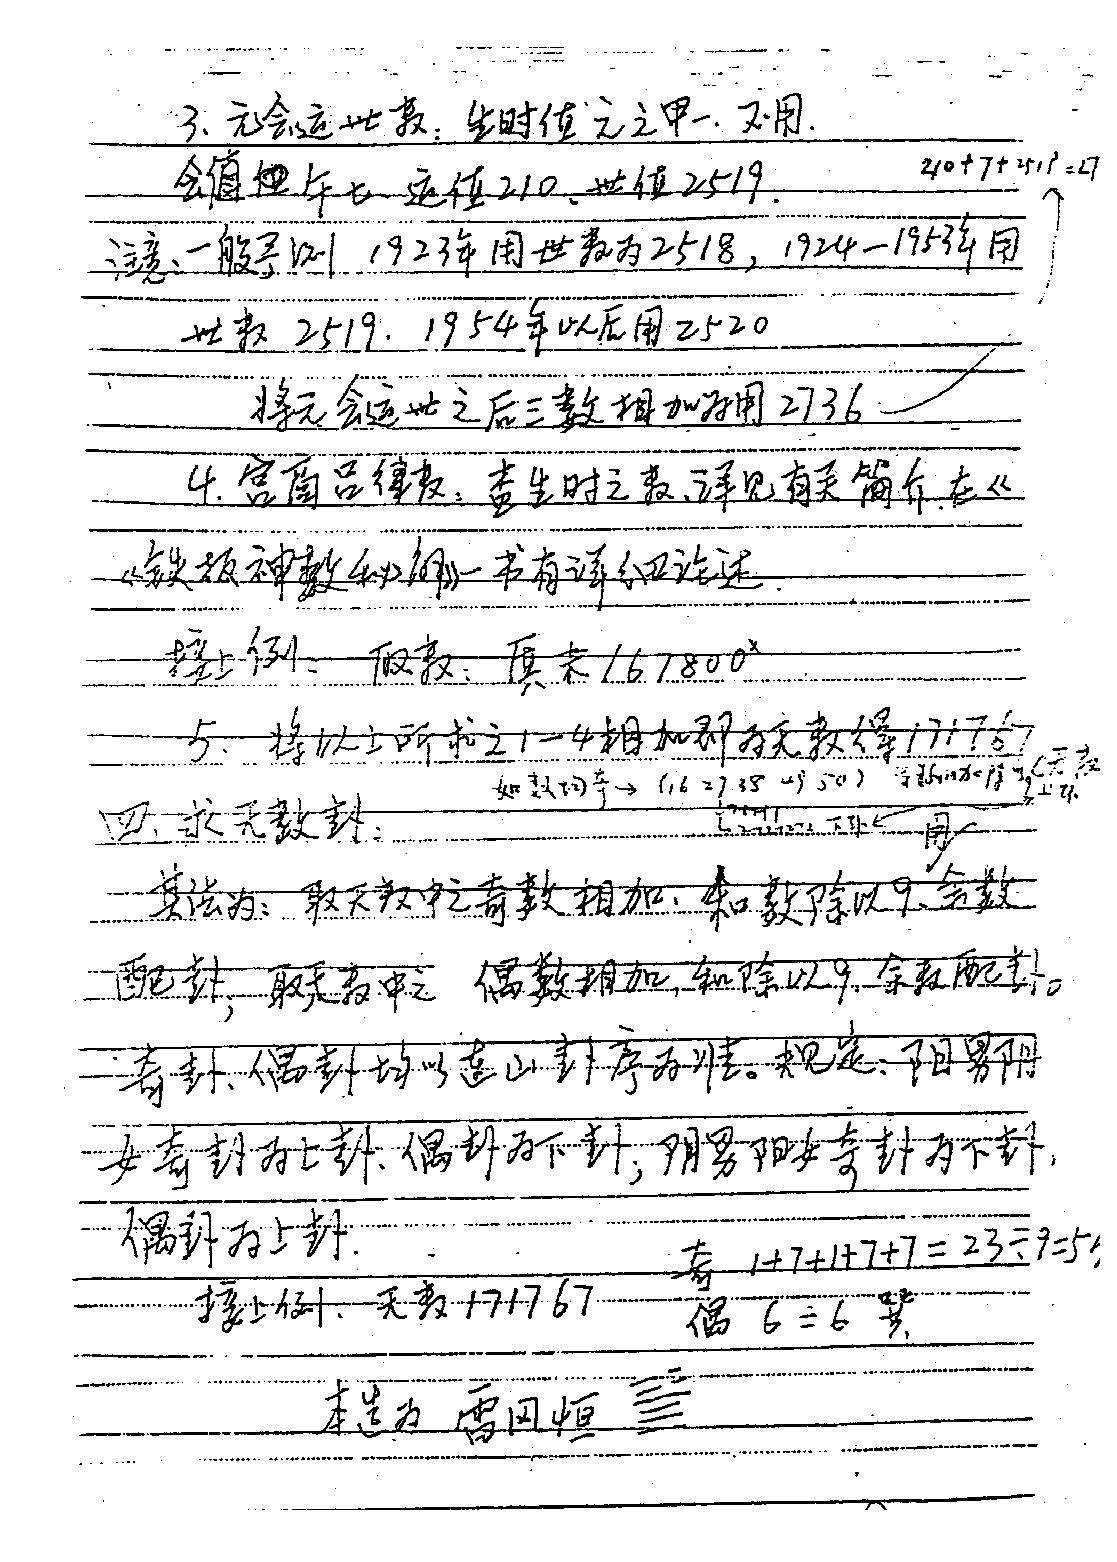 3、元会运世数：生时值元之甲一、不用.
会值 午七 运值210、世值2519.
210+7+2519=27
注意：一般 1923年用世数为2518，1924—1953年用
世数 2519. 1954年以后用2520
将元会运世之后三数相加为用2736
4.宫商吕律数：查生时之数、详见有关简介.在《
《铁板神数秘 》一书有详细论述.
接上例： 取数： 真未167800
5. 将以上所求之1—4相加即为天数得171767
如数均奇→（16 27 38 49 50）
下卦← 用
四、求天数卦：
其法为：取天数中之奇数相加、和数除以9、余数
配卦，取天数中之 偶数相加，和除以9，余数配卦。
奇卦、偶卦均以连山卦序为准。规定：阳男阴
女奇卦为上卦、偶卦为下卦，阴男阳女奇卦为下卦，
偶卦为上卦.
奇 1+7+1+7+7=23÷9=5
接上例、天数171767
偶 6÷6 巽
本造为 雷风恒